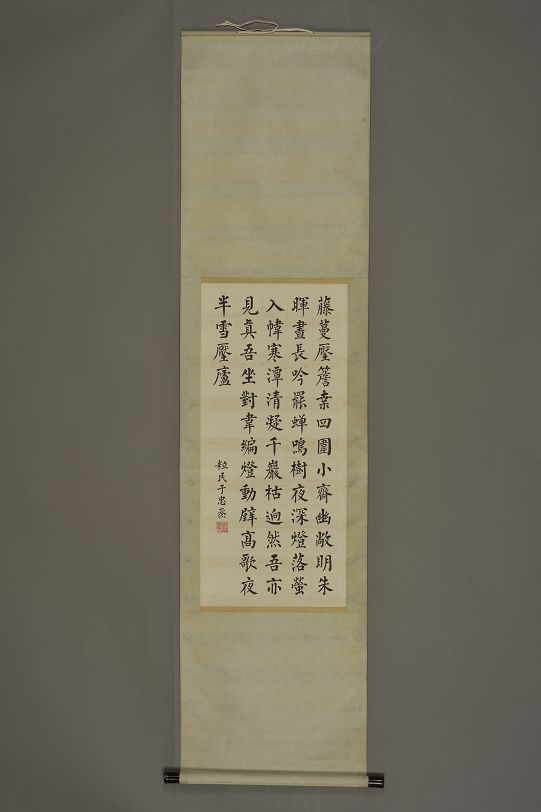 藤蔓壓簷桒四圍小齋幽敞明朱
暉晝長吟罷蝉鳴樹夜深燈落螢
入幃寒潭清凝千巖枯逈然吾亦
見真吾坐對韋編燈動壁高歌夜
半雪壓廬
粒民于忠